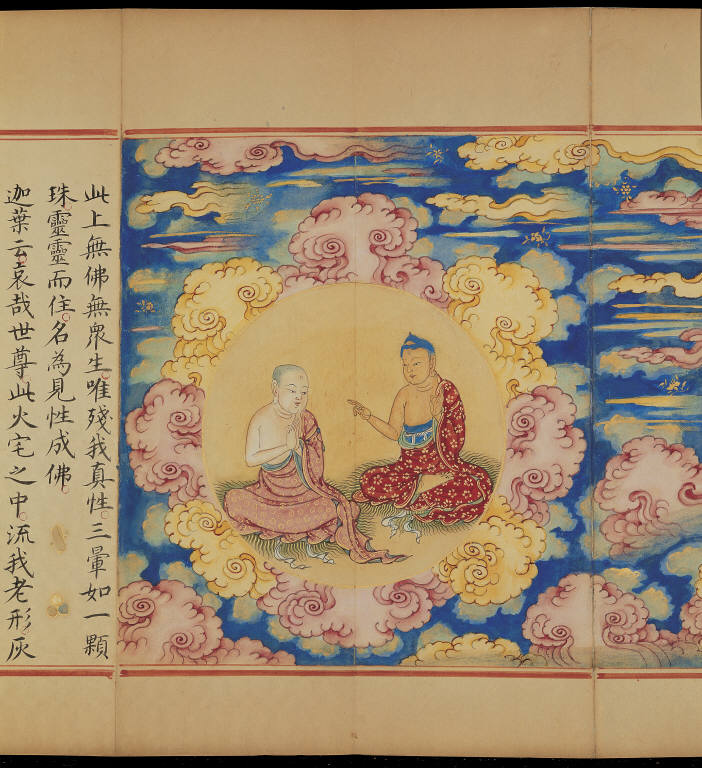 此上無佛無衆生唯殘我真性三暈如一顆
珠靈靈而住名為見性成佛
迦葉云哀哉世尊此火宅之中流我老形灰